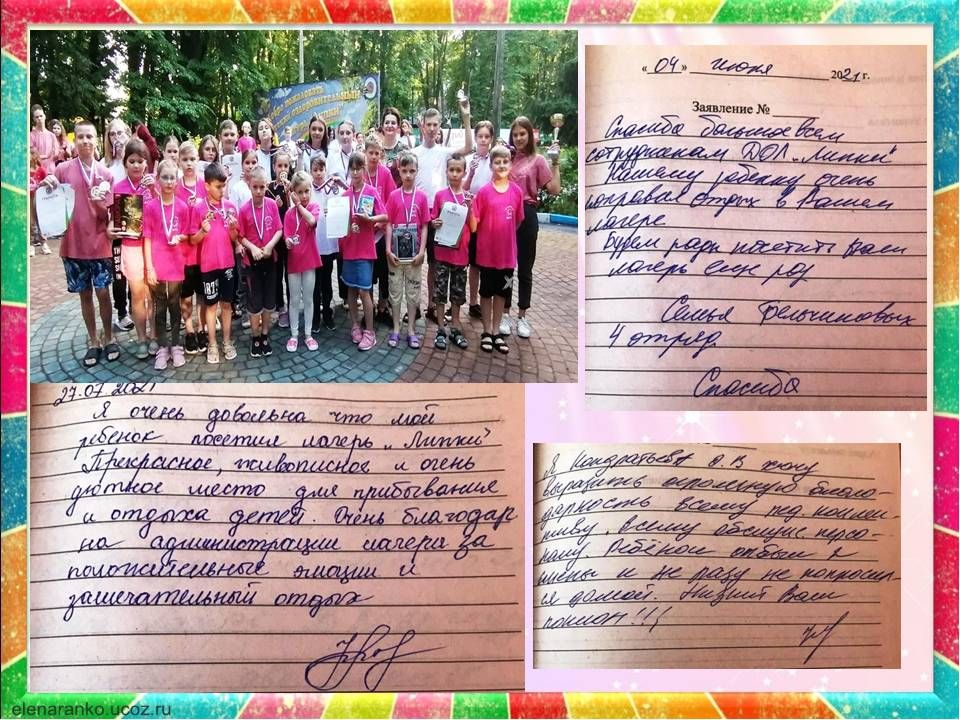 Добро пожаловать
оздоровительный
« 04 » июня 2021 г.
Заявление №
Спасибо большое всем
сотрудникам ДОЛ „Липки"
Нашему ребёнку очень
понравился отдых в Вашем
лагере
Будем рады посетить Ваш
лагерь ещё раз
Семья
4 отряд
Спасибо
27.07.2021
Я очень довольна что мой
ребенок посетил лагерь „Липки"
Прекрасное, живописное и очень
уютное место для прибывания
и отдыха детей. Очень благодар
на администрации лагеря за
положительные эмоции и
замечательный отдых
Я Кондратьева О.В хочу
выразить огромную благо-
дарность всему пед. коллек-
тиву. Всему обслуж. персо-
налу. Ребёнок отбыл 2
смены и не разу не попросил-
ся домой. Низкий Вам
поклон!!!
elenaranko.ucoz.ru